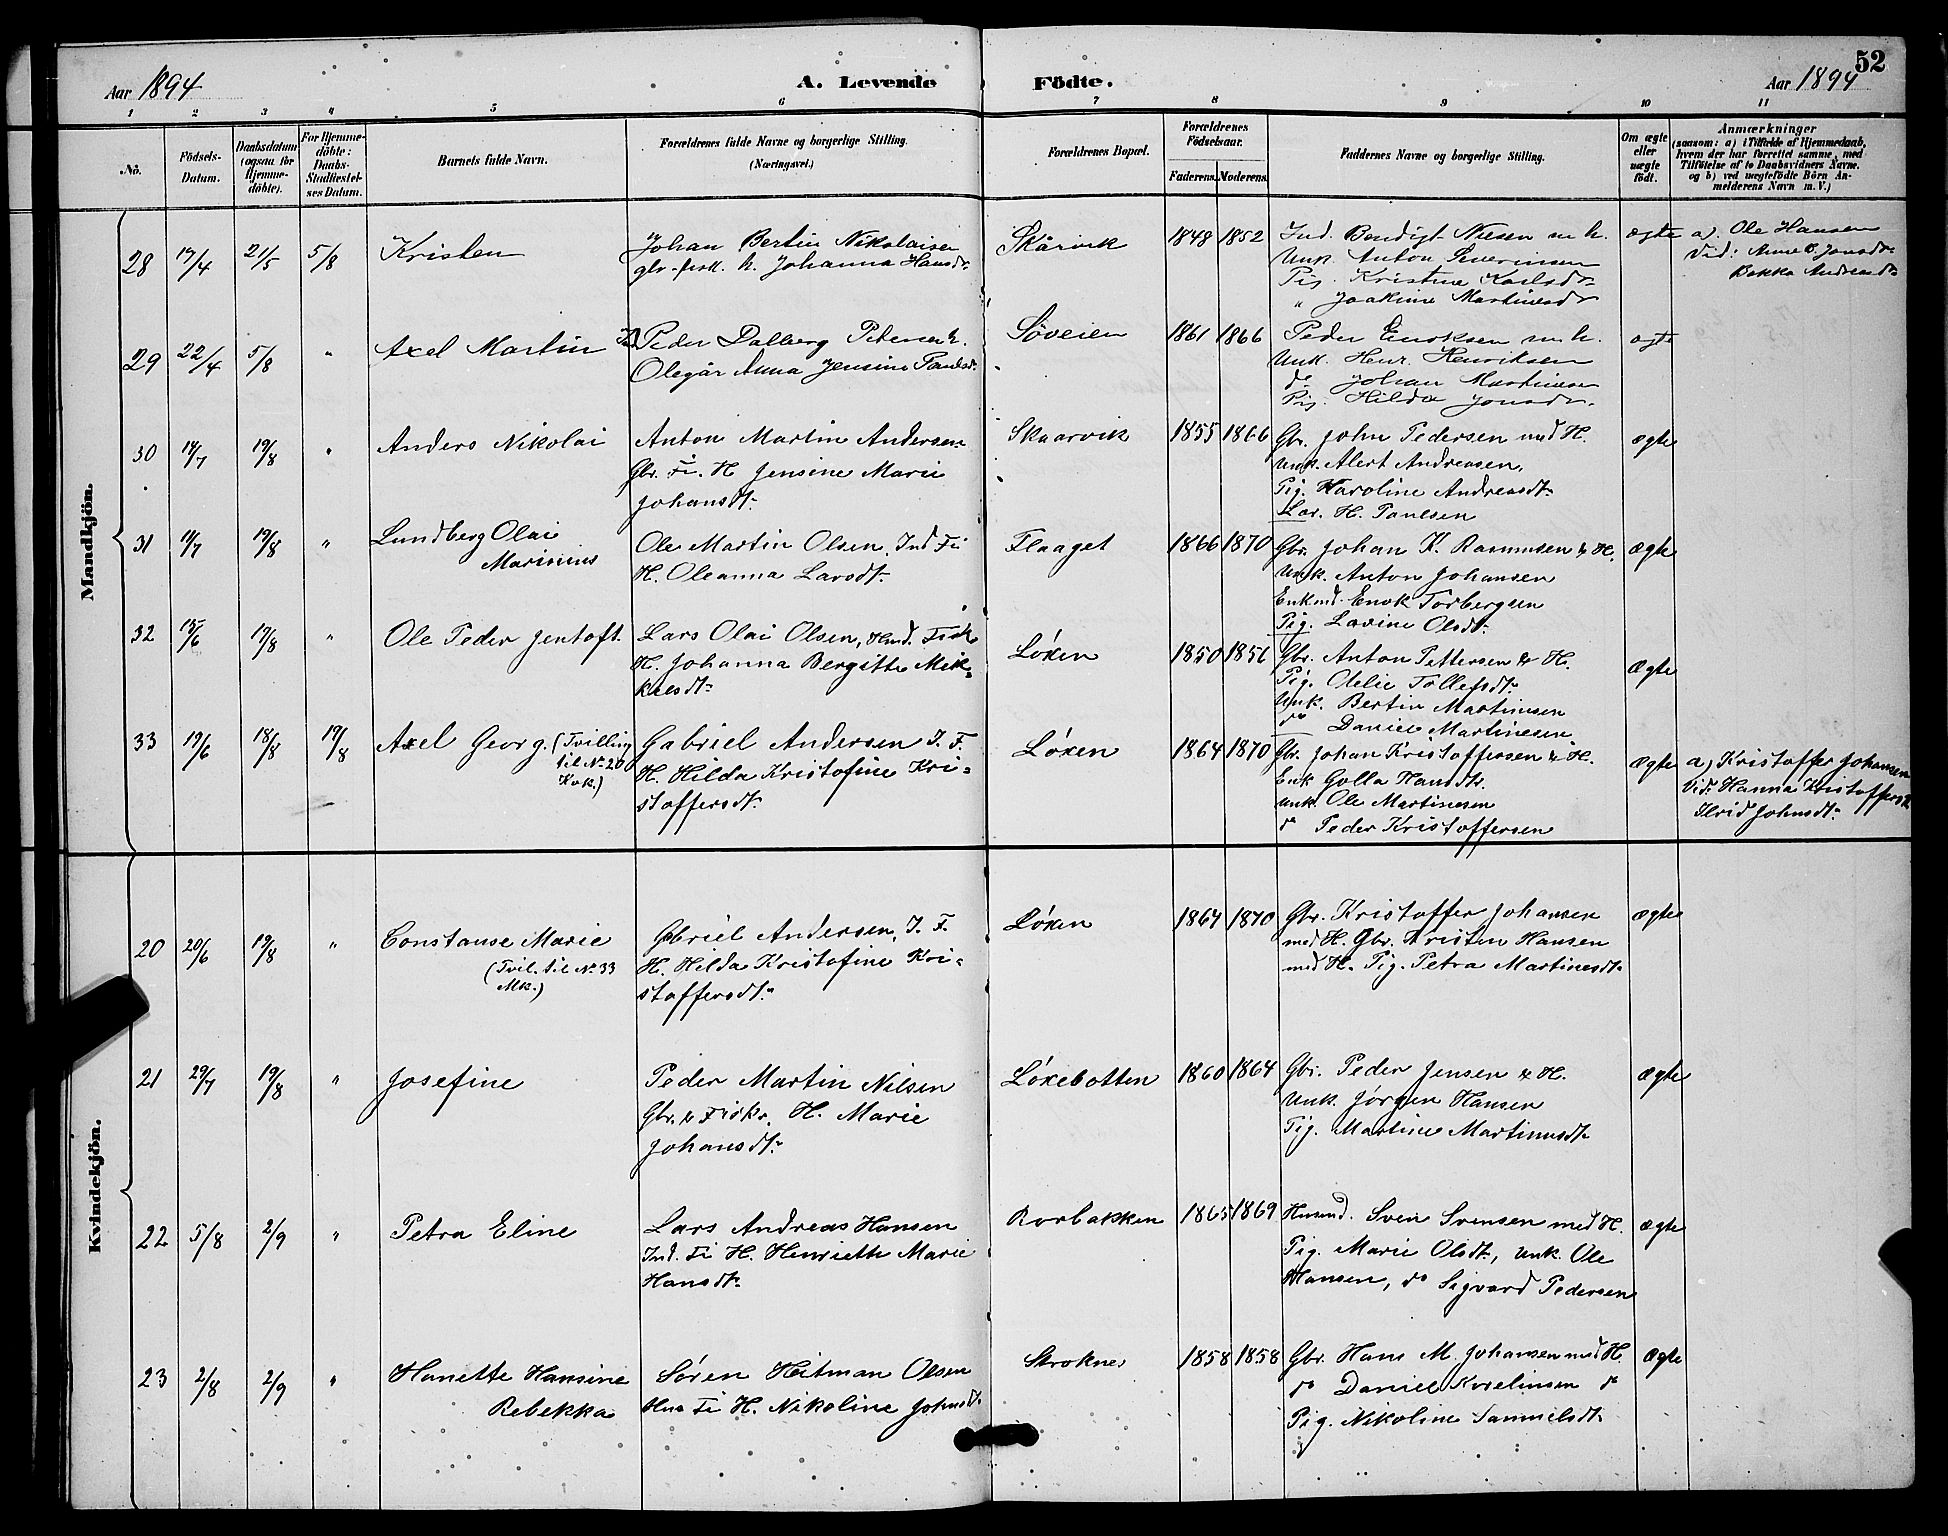 52
Aar 1894
A. Levende Födte.
Aar 1894
1 2 3 4 5 6 7 8 9 10 11
No.
Födsels-Datum.
Daabsdatum (ogsaa for Hjemme-döbte).
For Hjemme-döbte: Daabs-Stadfæstel-ses Datum.
Barnets fulde Navn.
Forældrenes fulde Navne og borgerlige Stilling. (Næringsvei.)
Forældrenes Bopæl.
Forældrenes Födselsaar.
Faderens. Moderens.
Faddernes Navne og borgerlige Stilling.
Om ægte eller uægte födt.
Anmærkninger
(saasom: a) i Tilfælde af Hjemmedaab,
hvem der har forrettet samme, med
Tilföielse af to Daabsvidners Navne.
og b) ved uægtefödte Börn An-
melderens Navn m. V.)
Mandkjön.
28 19/4 21/5 5/8 Kristen
Johan Bertin Nikolaisen
gbr. fisk. h. Johanna Hansdr
Skårvik 1848 1852
Ind. Bendigt Nilsen m h.
Unk. Anton Severinsen
Pig. Kristine Karlsdr
" Joakine Martinesdr
ægte
a). Ole Hansen
Vid: Anne C. Jonsdr
Bekka Andreasdr
29 22/4 5/8 " Axel Martin
Peder Dalberg Petersen h.
Olegår Anna Jensine Paulsdr
Söveien 1861 1866
Peder Enoksen m. h.
Unk. Henr. Henriksen
do Johan Martinesen
Pig. Hilda Jonsdr.
ægte
30 14/7 19/8 " Anders Nikolai
Anton Martin Andersen
Gbr. Fi. H Jensine Marie
Johansdt.
Skaarvik 1855 1866
Gbr. John Pedersen med H.
Unk. Alert Andreasen,
Pig. Karoline Andreasdt.
Lar. H. Paulsen
ægte
31 11/7 19/8 " Lundberg Olai
Marinius
Ole Martin Olsen, Ind Fi
H. Oleanna Larsdt.
Flaaget 1866 1870
Gbr. Johan K. Rasmusen & H.
Unk. Anton Johansen
Enkmd. Enok Torbergsen
Pig. Lovine Olsdt.
Ægte
32 15/6 19/8 " Ole Peder Jentoft.
Lars Olai Olsen, Hmd. Fisk
H. Johanna Bergitte Mik-
kelsdt.
Løken 1850 1856
Gbr. Anton Pettersen & H.
Pig. Otelie Tollefsdt.
Unk. Bertin Martinesen
do Daniel Martinesen
Ægte
33 19/6 18/8 19/8 Axel Georg. (Tvilling
til No 20
Kvk.)
Gabriel Andersen I. F.
H. Hilda Kristofine Kri-
stoffersdt.
Løken 1864 1870
Gbr. Johan Kristoffersen & H.
Enk Golla Hansdt.
Unk. Ole Martinesen
do Peder Kristoffersen
Ægte
a) Kristoffer Johansen
Vid. Hanna Kristoffersdt
Ilrid Johnsdt.
Kvindekjön.
20 20/6 19/8 " Constanse Marie
(Tvil. til No 33
Mk.)
Gabriel Andersen, I. F.
H. Hilda Kristofine Kri-
stoffersdt.
Løken 1864 1870
Gbr. Kristoffer Johansen
med H. Gbr. Kristen Hansen
med H. Pig. Petra Martinesdt.
Ægte
21 29/7 19/8 " Josefine
Peder Martin Nilsen
Gbr. & Fisk. H. Marie
Johansdt.
Løkebotten 1860 1864
Gbr. Peder Jensen & H.
Unk. Jørgen Hansen
Pig. Martine Martinusdt.
Ægte
22 5/8 2/9 " Petra Eline
Lars Andreas Hansen
Ind. Fi H. Henriette Marie
Hansdt.
Rorbakken 1865 1869
Husmd. Sven Svensen med H.
Pig. Marie Olsdt., Unk. Ole
Hansen, do Sigvard Pedersen
Ægte
23 2/8 2/9 " Hanette Hansine
Rebekka
Søren Heitman Olsen
Hus Fi H. Nikoline Johnsdt.
Straknes 1858 1858
Gbr. Hans M. Johansen med H.
do Daniel Kvelinsen do
Pig. Nikoline Samuelsdt.
Ægte